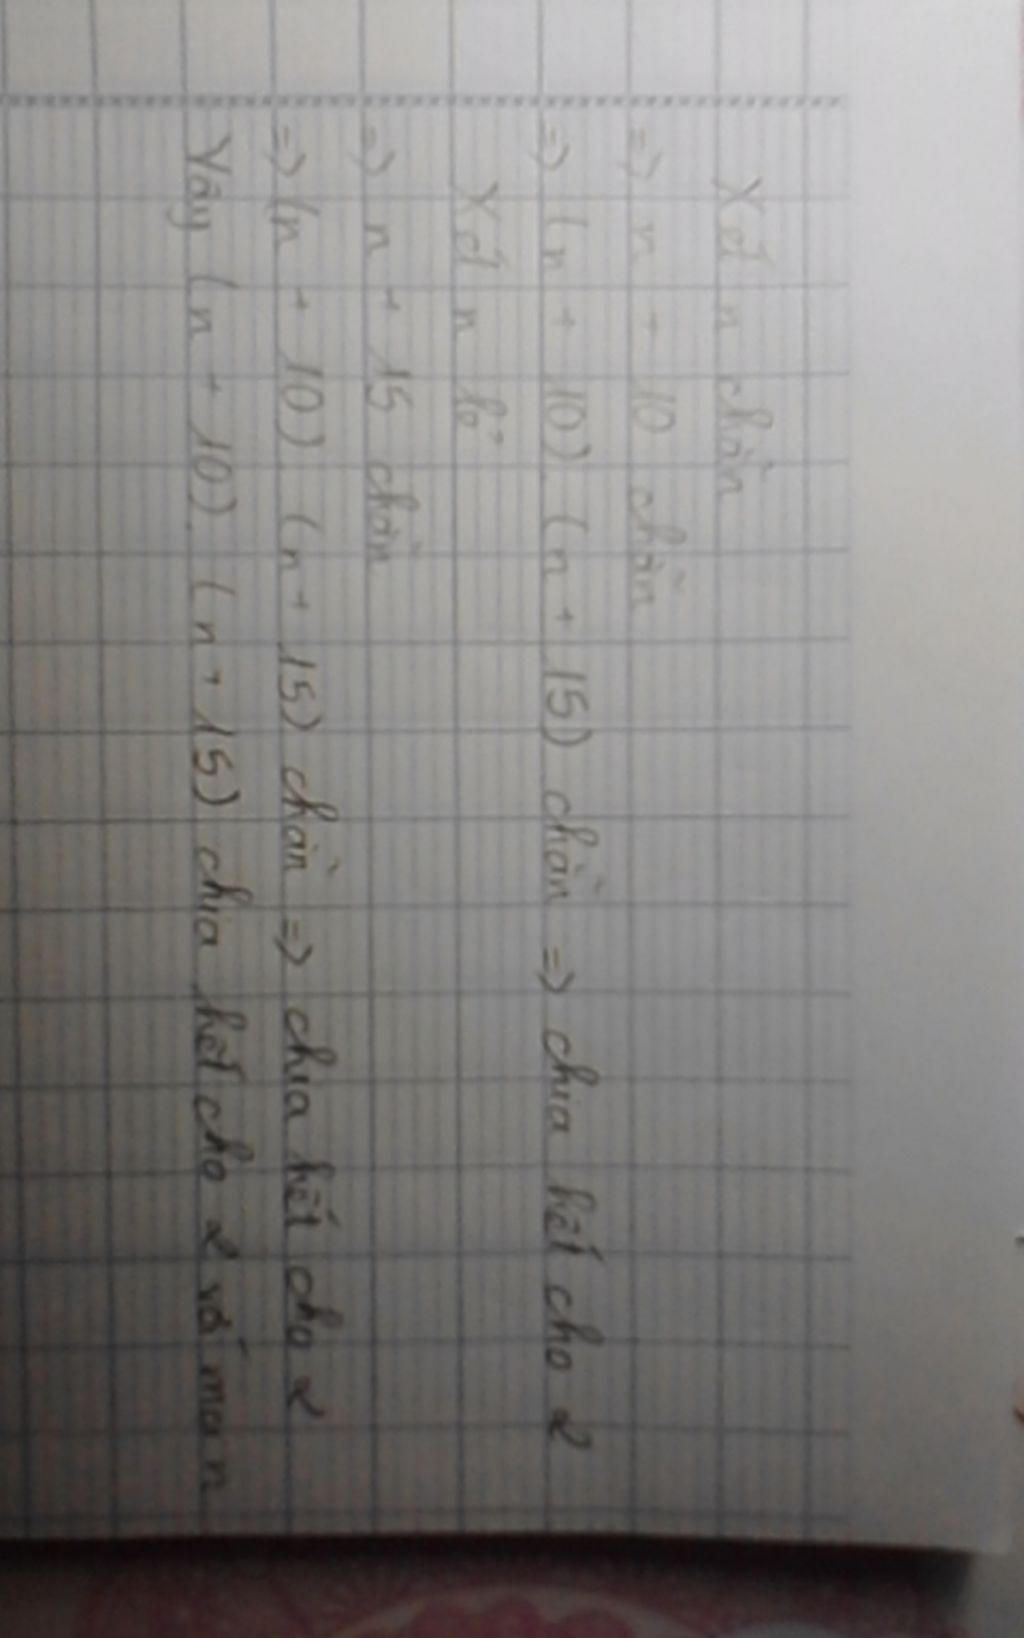 Xét n chẵn
=> n + 10 chẵn
=> (n + 10).(n + 15) chẵn => chia hết cho 2
Xét n lẻ
=> n + 15 chẵn
=> (n + 10).(n + 15) chẵn => chia hết cho 2
Vậy (n + 10).(n + 15) chia hết cho 2 với mọi n